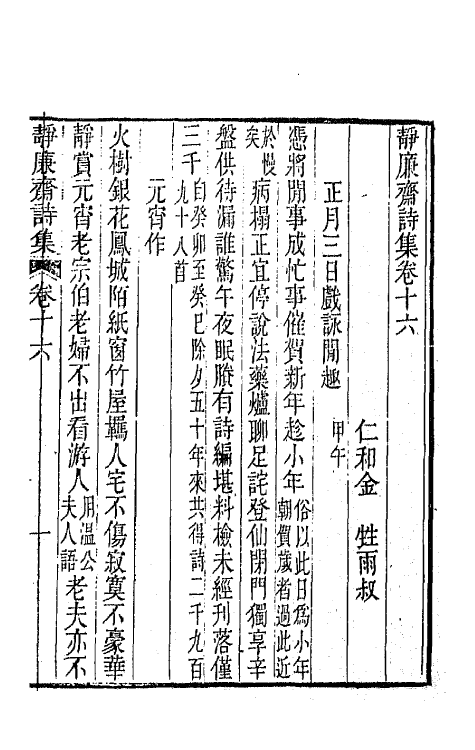 靜廉齋詩集卷十六
仁和金　甡雨叔
正月三日戲詠閒趣 甲午
憑將閒事成忙事催賀新年趁小年 俗以此日為小年朝賀歲者過此近
於慢矣 病榻正宜停說法藥爐聊足詫登仙閉門獨享辛
盤供待漏誰驚午夜眠賸有詩編堪料檢未經刊落僅
三千 自癸卯至癸巳除夕五十年來共得詩二千九百九十八首
元宵作
火樹銀花鳳城陌紙窗竹屋羈人宅不傷寂寞不豪華
靜賞元宵老宗伯老婦不出看游人 用溫公夫人語 老夫亦不
靜廉齋詩集 卷十六 一